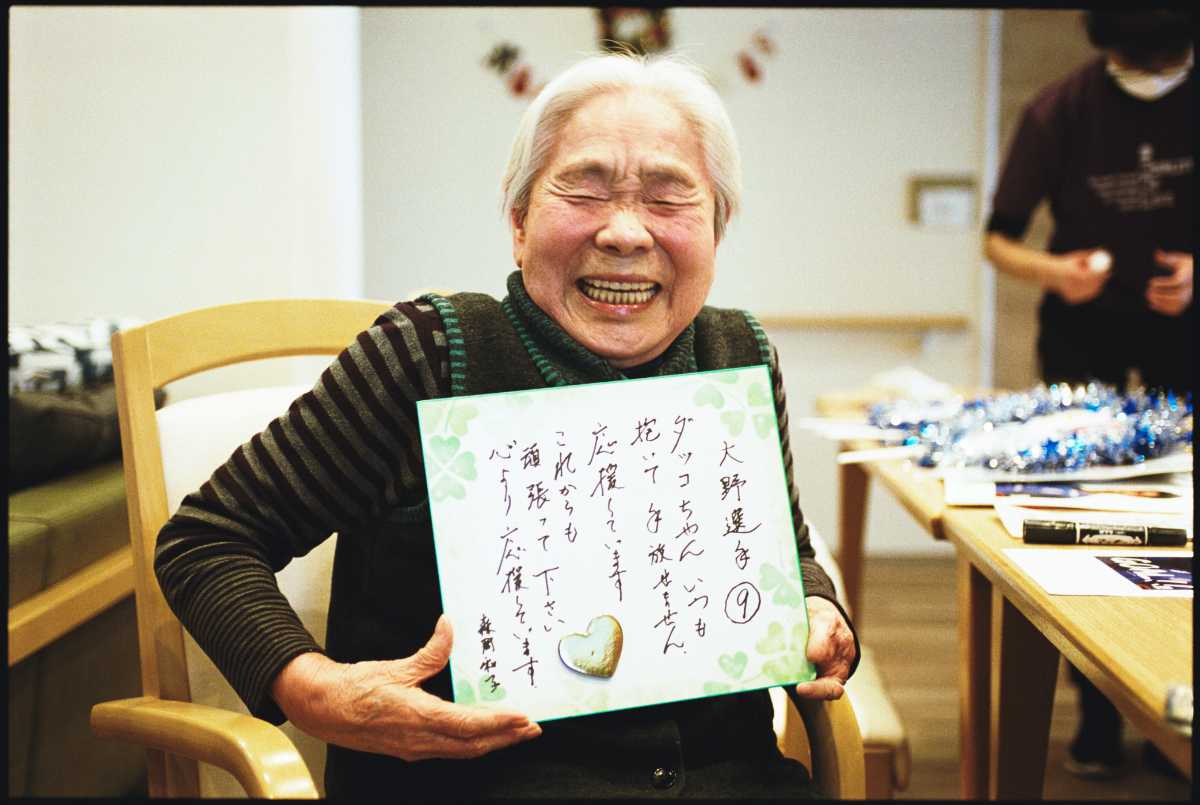 大野選手 ⑨
ダッコちゃん いつも
抱いて手放せません。
応援しています
これからも
頑張って下さい
心より応援しています。
森岡和子